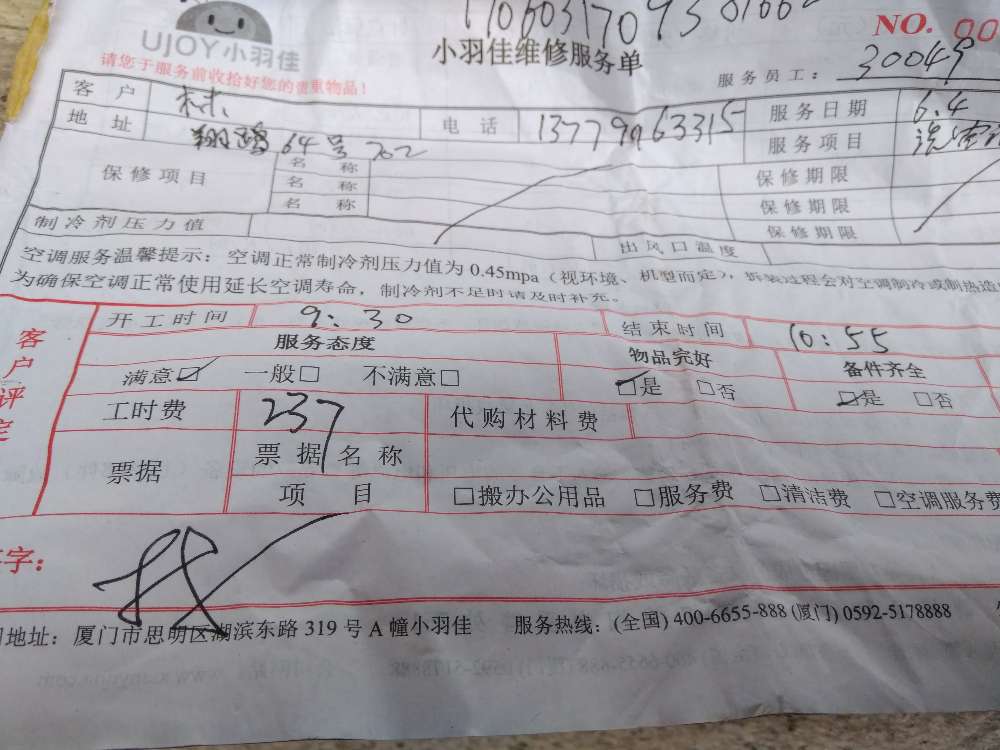 UJOY小羽佳
小羽佳维修服务单
NO. 00
请您于服务前收拾好您的贵重物品！
服务员工： 30049
客户 林
电话 13779963315
服务日期 6.4
地址 翔鹭64号702
服务项目 洗
保修项目
名称
保修期限
名称
保修期限
名称
保修期限
制冷剂压力值
出风口温度
空调服务温馨提示：空调正常制冷剂压力值为 0.45mpa（视环境、机型而定），拆装过程会对空调制冷或制热造
为确保空调正常使用延长空调寿命，制冷剂不足时请及时补充。
客户评定
开工时间 9:30
结束时间 10:55
服务态度
物品完好
备件齐全
满意☑ 一般□ 不满意□
☑是 □否
☑是 □否
工时费 237
代购材料费
票据
票据名称
项目
□搬办公用品 □服务费 □清洁费 □空调服务费
字：
地址：厦门市思明区湖滨东路 319 号 A 幢小羽佳 服务热线：(全国) 400-6655-888 (厦门) 0592-5178888